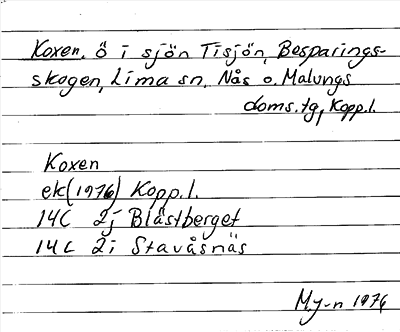 Koxen, ö i sjön Tisjön, Besparings-
skogen, Lima sn, Nås o. Malungs
doms.tg, Kopp.l.
Koxen
ek (1976) Kopp.l.
14C 2j Blästberget
14C 2i Stavåsnäs
M.y-n 1976